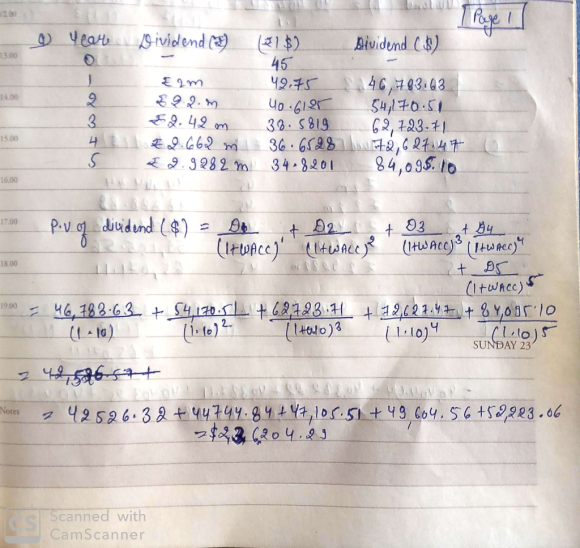 Page 1
a) Year Dividend (₹) (₹1$) Dividend ($)
0 — 45 —
1 ₹2m 42.75 46,783.63
2 ₹2.2.m 40.6125 54,170.51
3 ₹2.42 m 38.5819 62,723.71
4 ₹2.662 m 36.6528 72,627.47
5 ₹2.9282 m 34.8201 84,095.10
P.V of dividend ($) = D1/(1+WACC)^1 + D2/(1+WACC)^2 + D3/(1+WACC)^3 + D4/(1+WACC)^4
+ D5/(1+WACC)^5
= 46,783.63/(1.10) + 54,170.51/(1.10)^2 + 62723.71/(1.10)^3 + 72,627.47/(1.10)^4 + 84,095.10/(1.10)^5
SUNDAY 23
= 42526.32 + 44744.84 + 47,105.51 + 49,604.56 + 52,223.06
= $2,36,204.29
13.00
14.00
15.00
16.00
17.00
18.00
19.00
Notes
CS
Scanned with
CamScanner